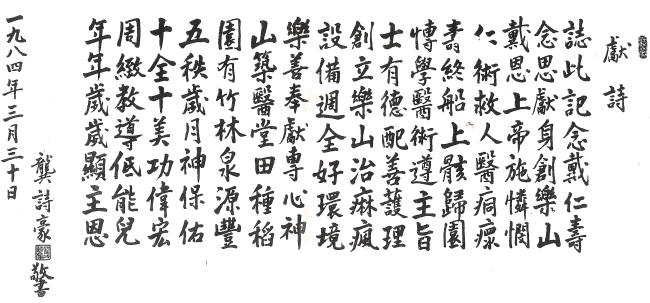 獻詩
誌此記念戴仁壽
念思獻身創樂山
戴思上帝施憐憫
仁術救人醫痌癝
壽終船上骸歸園
博學醫術遵主旨
士有德配善護理
創立樂山治痳瘋
設備週全好環境
樂善奉獻專心神
山築醫堂田種稻
園有竹林泉源豐
五秩歲月神保佑
十全十美功偉宏
周緻教導低能兒
年年歲歲顯主恩
一九八四年三月三十日
龔詩豪敬書